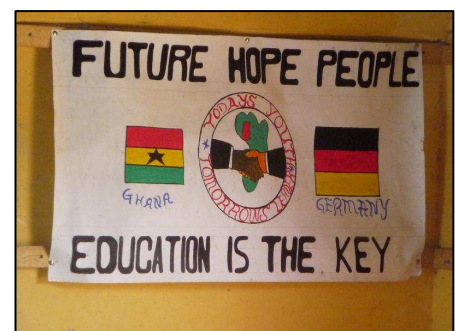 FUTURE HOPE PEOPLE
TODAYS YOUTH
TOMORROWS
GHANA
GERMANY
EDUCATION IS THE KEY